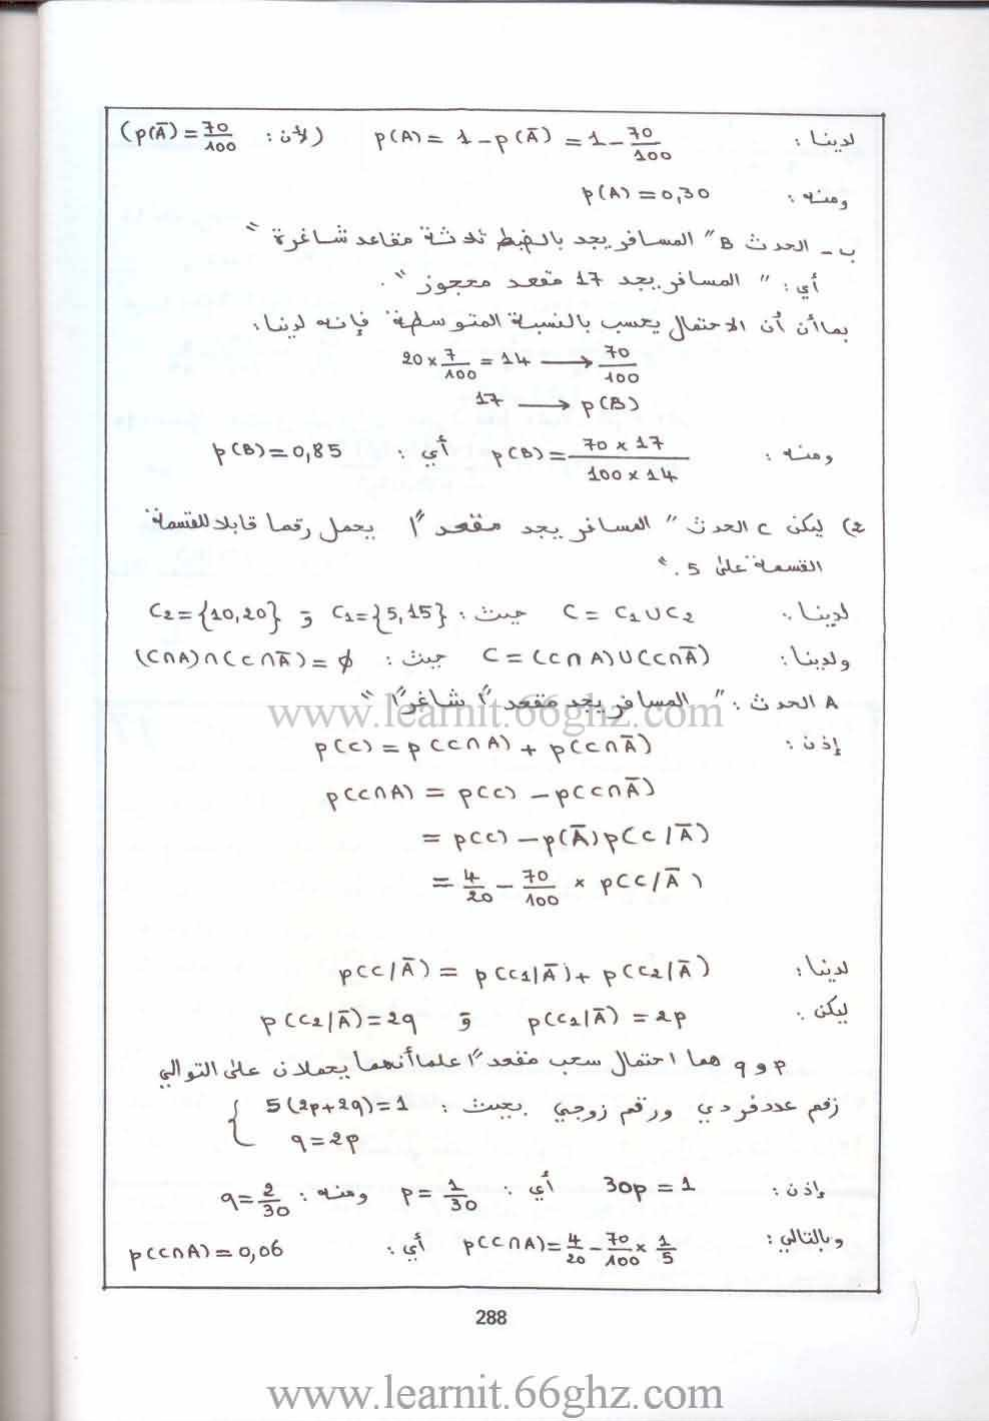 لدينا : p(A) = 1 - p(Ā) = 1 - 70/100 (لأن : p(Ā) = 70/100)
ومنه : p(A) = 0,30
ب - الحدث B "المسافر يجد بالضبط ثلاثة مقاعد شاغرة"
أي : "المسافر يجد 17 مقعد محجوز".
بما أن أن الاحتمال يحسب بالنسبة المتوسطية فإنه لدينا :
20 × 7/100 = 14 ⟶ 70/100
17 ⟶ p(B)
ومنه : p(B) = (70 × 17)/(100 × 14) أي : p(B) = 0,85
ج) ليكن C الحدث "المسافر يجد مقعدًا يحمل رقما قابلا للقسمة
القسمة على 5".
لدينا : C = C₁ ∪ C₂ حيث : C₁ = {5,15} و C₂ = {10,20}
ولدينا : C = (C∩A) ∪ (C∩Ā) حيث : (C∩A) ∩ (C∩Ā) = ∅
A الحدث : "المسافر يجد مقعدًا شاغرًا"
www.learnit.66ghz.com
إذن : p(C) = p(C∩A) + p(C∩Ā)
p(C∩A) = p(C) - p(C∩Ā)
= p(C) - p(Ā)p(C/Ā)
= 4/20 - 70/100 × p(C/Ā)
لدينا : p(C/Ā) = p(C₁/Ā) + p(C₂/Ā)
ليكن : p(C₁/Ā) = 2p و p(C₂/Ā) = 2q
p و q هما احتمال سحب مقعدًا علما أنهما يحملان على التوالي
رقم عدد فردي ورقم زوجي بحيث : { 5(2p+2q) = 1
q = 2p
إذن : 30p = 1 أي : p = 1/30 ومنه : q = 2/30
وبالتالي : p(C∩A) = 4/20 - 70/100 × 1/5 أي : p(C∩A) = 0,06
288
www.learnit.66ghz.com